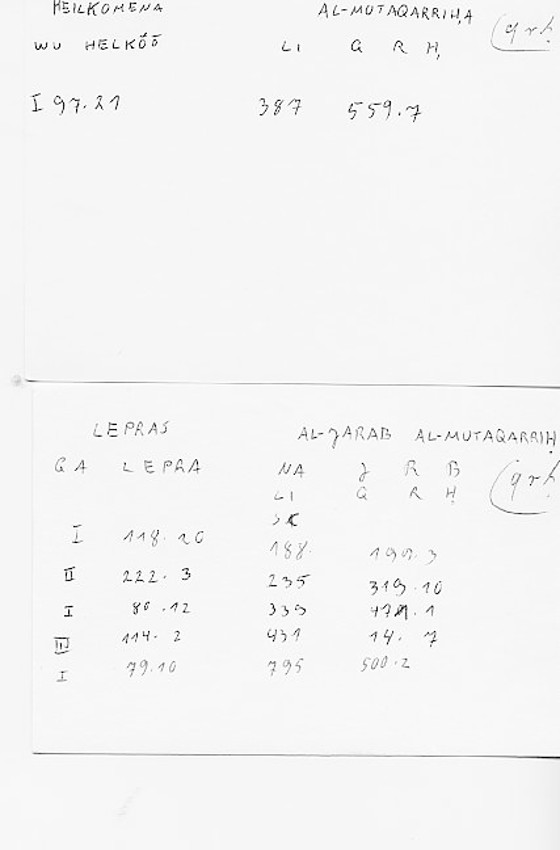 HEILKOMENA AL-MUTAQARRIḤA (qrḥ
WU HELKÓŌ LI Q R Ḥ
I 97.21 387 559.7
LEPRAS AL-JARAB AL-MUTAQARRIḤ
QA LEPRA NA J R B (qrḥ
LI Q R Ḥ
SK
I 118.20 188. 199.3
II 222.3 235 319.10
I 80.12 339 1
III 114.2 431 14.7
I 79.10 795 500.2